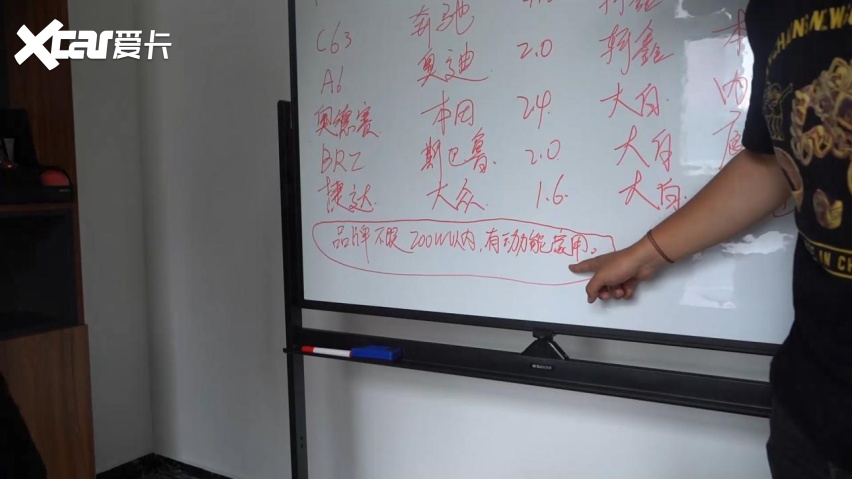 Xcar爱卡
C63 奔驰
A6 奥迪 2.0 轲鑫
奥德赛 本田 24 大白 内
BRZ 斯巴鲁 2.0 大白
捷达 大众 1.6 大白
品牌不限 200W以内，有动力能家用。